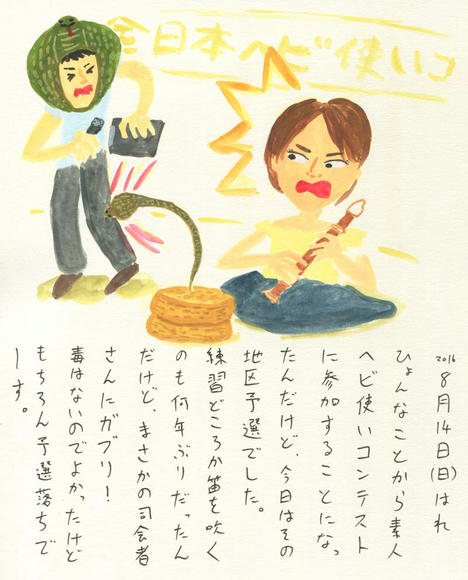 全日本ヘビ使いコ
2016 8月14日(日)はれ
ひょんなことから素人
ヘビ使いコンテスト
に参加することになっ
たんだけど、今日はその
地区予選でした。
練習どころか笛を吹く
のも何年ぶりだったん
だけど、まさかの司会者
さんにガブリ！
毒はないのでよかったけど
もちろん予選落ちで
ーす。